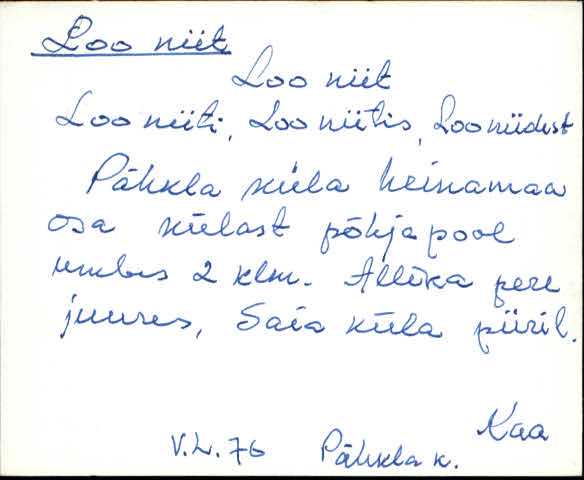 Loo niit
Loo niit
Loo niiti, Loo niitis, Looniidest
Pähkla küla heinamaa
osa külast põhjapool
umbes 2 klm. Allika pere
juures, Saia küla piiril.
Kaa
V.L. 76 Pähkla k.